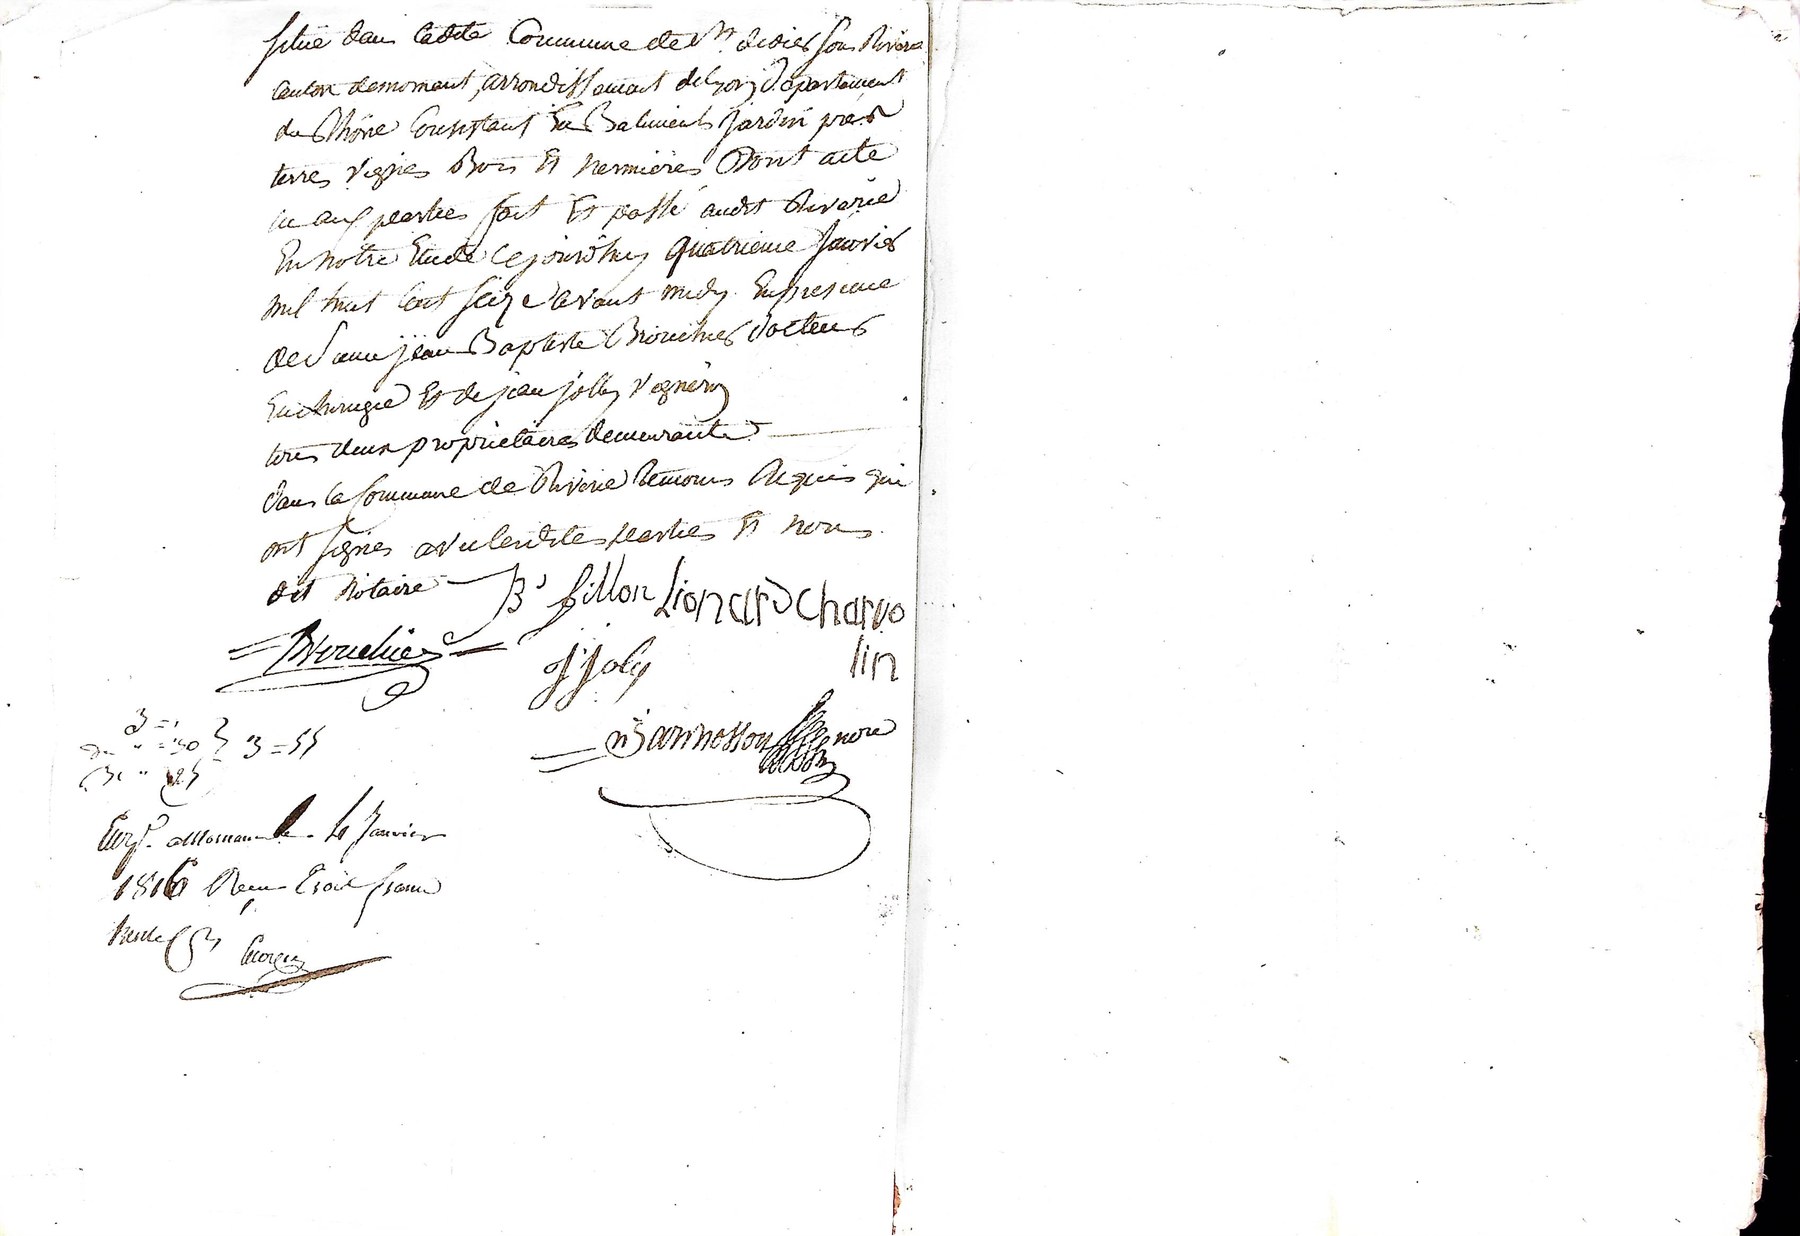 situé dans ladite Commune de St. didier sous Riverie
canton demornant, arrondissement de lyon, département
du Rhône Consistant En Batiments jardin prés
terres vignes Bois Et hermières Dont acte
lu aux parties fait Et passé audit Riverie
En notre Etude Cejourd'huy quatrieme Janvier
mil huit cent seize avant midy Enpresence
de Sieur jean Baptiste Brouchier docteur
En chirurgie Et de jean jolly vigneron
tous deux proprietaires demeurants
dans la Commune de Riverie temoins Requis qui
ont signés avec lesdites parties Et nous
dit Notaire
B. fillon Lionard charvo
lin
Brouchier
J Joly
nore
3 =
" = 30 } 3 = 55
" 25
Enr. a Mornant le Janvier
1816 Recu trois francs